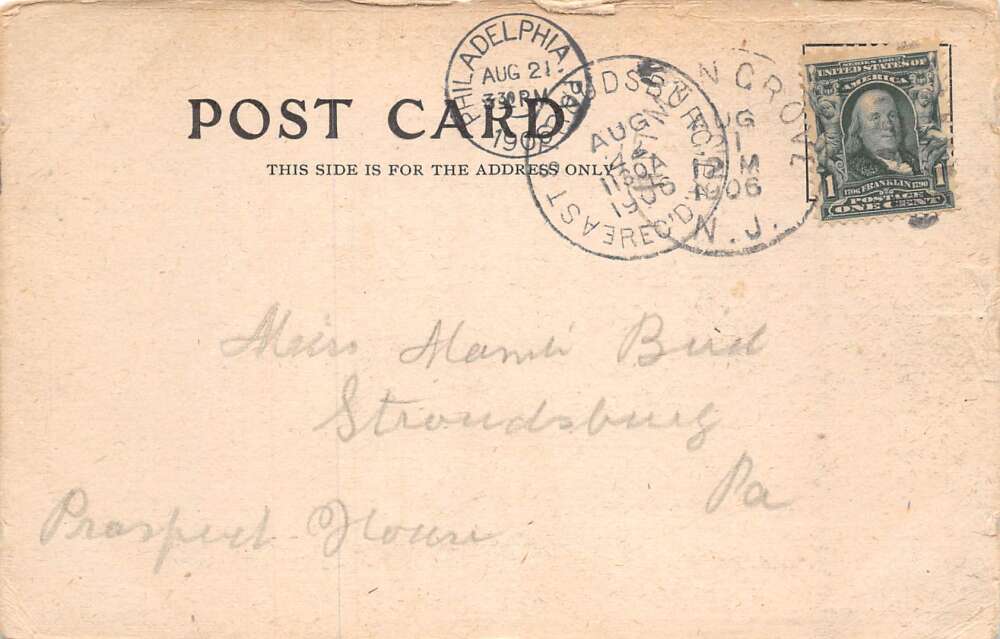 PHILADELPHIA, PA.
AUG 21
330 PM
1906
EAST STROUDSBURG
AUG
REC'D
N GRO
AUG
M
1906
N.J.
SERIES 1902
UNITED STATES OF
AMERICA
1 1706 FRANKLIN 1790 1
POSTAGE
ONE CENT
POST CARD
THIS SIDE IS FOR THE ADDRESS ONLY
Miss Mami Bird
Stroudsburg
Pa
Prospect House